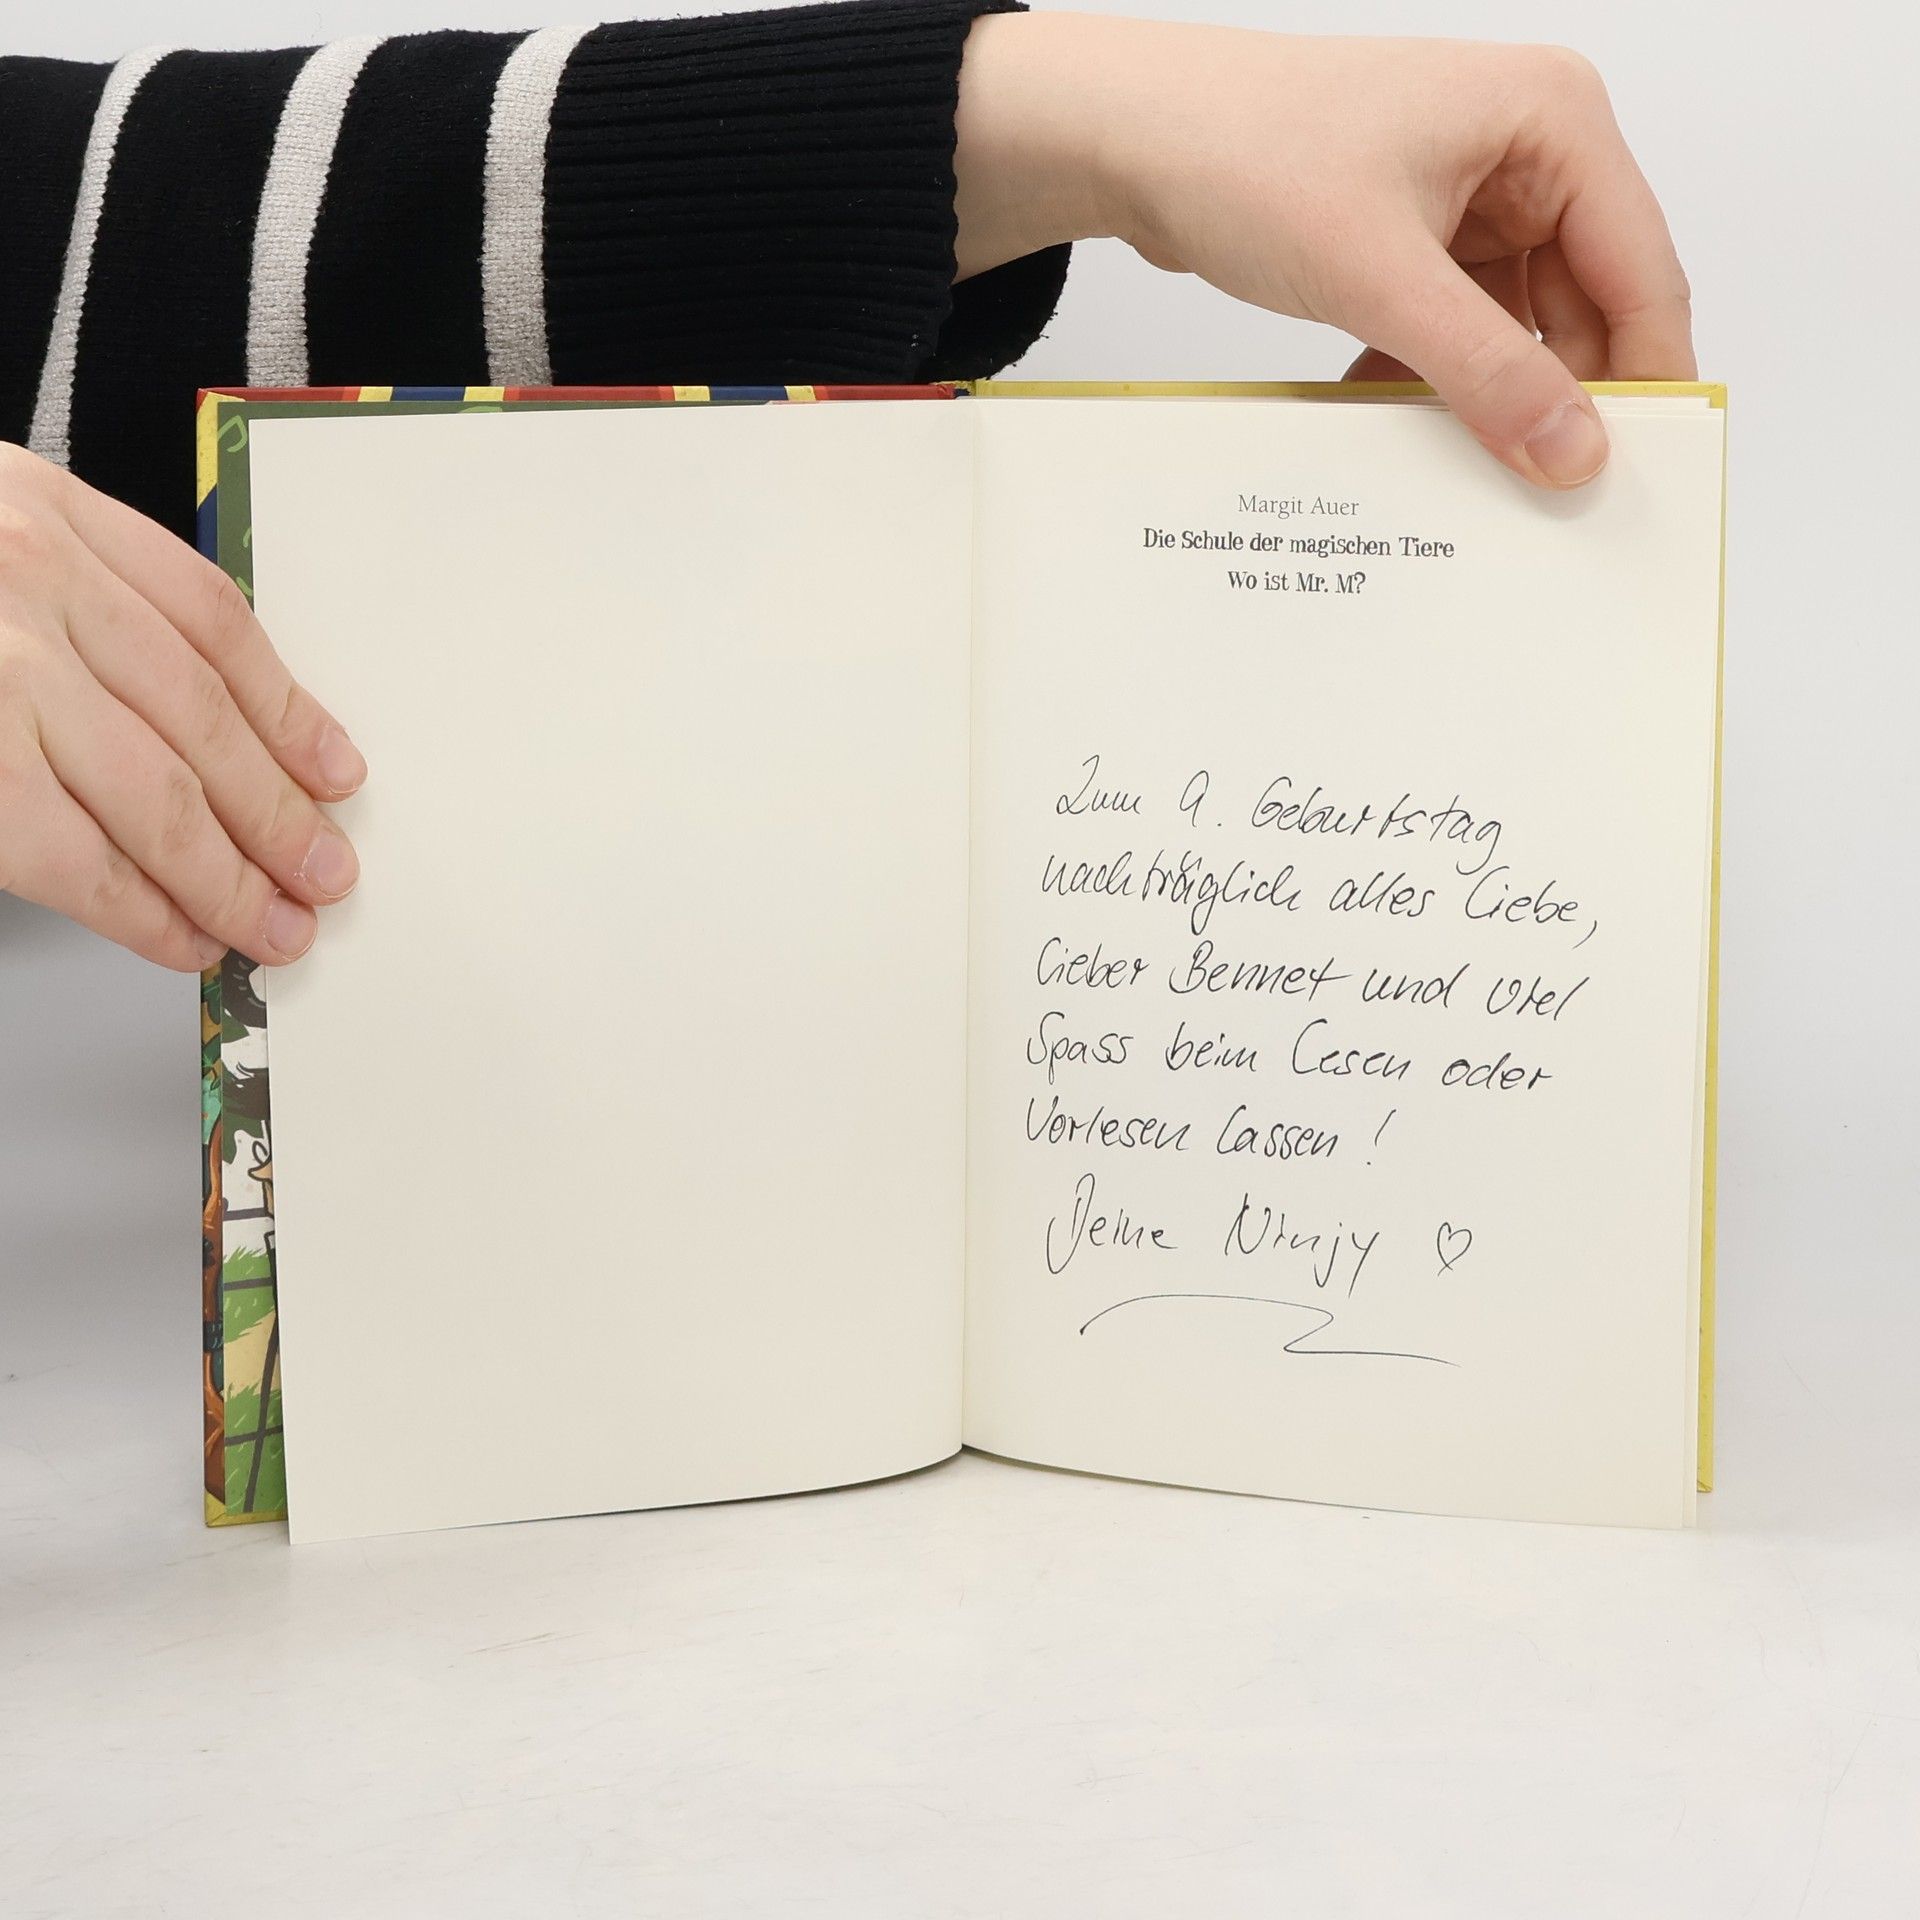 Margit Auer
Die Schule der magischen Tiere
Wo ist Mr. M?
Zum 9. Geburtstag
nachträglich alles Liebe,
lieber Bennet und viel
Spass beim Lesen oder
Vorlesen lassen!
Deine Ninjy ♡